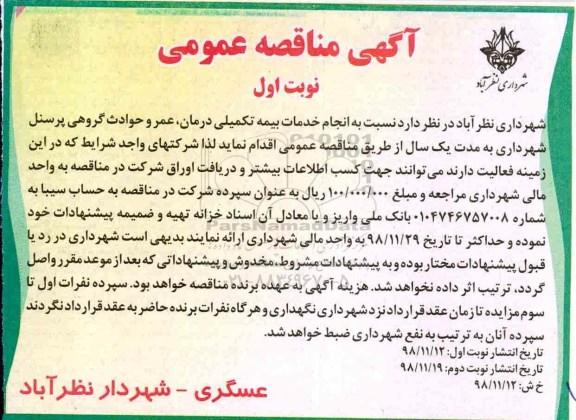 آگهی مناقصه عمومی
نوبت اول
شهرداری نظرآباد
شهرداری نظر آباد در نظر دارد نسبت به انجام خدمات بیمه تکمیلی درمان، عمر و حوادث گروهی پرسنل
شهرداری به مدت یک سال از طریق مناقصه عمومی اقدام نماید لذا شرکتهای واجد شرایط که در این
زمینه فعالیت دارند می‌توانند جهت کسب اطلاعات بیشتر و دریافت اوراق شرکت در مناقصه به واحد
مالی شهرداری مراجعه و مبلغ ۱۰۰/۰۰۰/۰۰۰ ریال به عنوان سپرده شرکت در مناقصه به حساب سیبا به
شماره ۰۱۰۴۷۴۶۷۵۷۰۰۸ بانک ملی واریز و یا معادل آن اسناد خزانه تهیه و ضمیمه پیشنهادات خود
نموده و حداکثر تا تاریخ ۹۸/۱۱/۲۹ به واحد مالی شهرداری ارائه نمایند بدیهی است شهرداری در رد یا
قبول پیشنهادات مختار بوده و به پیشنهادات مشروط، مخدوش و پیشنهاداتی که بعد از موعد مقرر واصل
گردد، ترتیب اثر داده نخواهد شد. هزینه آگهی به عهده برنده مناقصه خواهد بود. سپرده نفرات اول تا
سوم مزایده تا زمان عقد قرارداد نزد شهرداری نگهداری و هرگاه نفرات برنده حاضر به عقد قرارداد نگردند
سپرده آنان به ترتیب به نفع شهرداری ضبط خواهد شد.
تاریخ انتشار نوبت اول: ۹۸/۱۱/۱۲
تاریخ انتشار نوبت دوم: ۹۸/۱۱/۱۹
خ ش: ۹۸/۱۱/۱۲
عسگری - شهردار نظرآباد
ParsNamadData